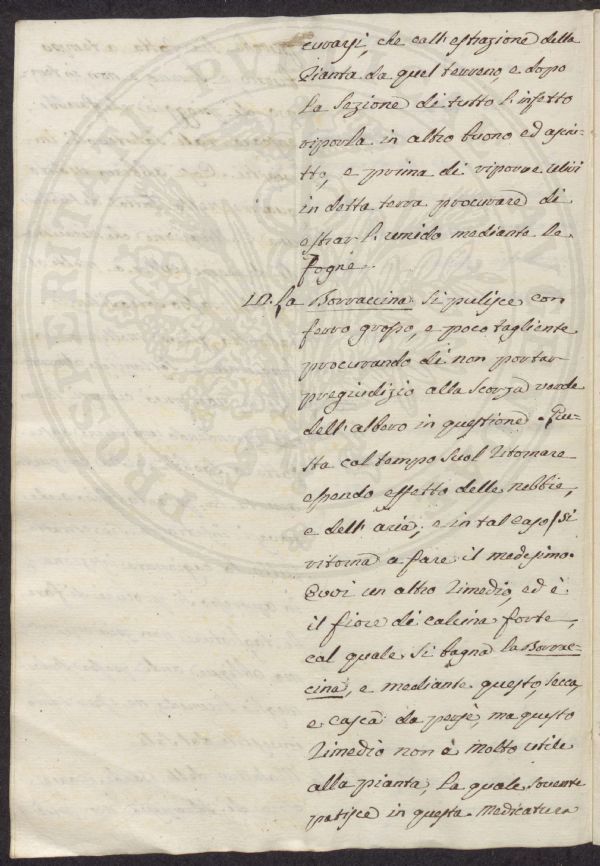 curarsi, che coll' estrazione della
Pianta da quel terreno, e dopo
la Sezione di tutto l' infetto
riporla in altro buono ed asciu-
tto, e prima di riporre ulivi
in detta terra procurare di
estrar l' umido mediante le
fogne.
10. La Borraccina si pulisce con
ferro grosso, e poco tagliente
procurando di non portar
pregiudizio alla Scorza verde
dell' albero in questione. Que-
sta col tempo suol ritornare
essendo effetto delle nebbie,
e dell' aria, e in tal caso si
ritorna a fare il medesimo.
Evvi un altro rimedio, ed è
il fiore di calcina forte,
col quale si bagna la Borrac-
cina, e mediante questo, secca,
e casca da per se, ma questo
rimedio non è molto utile
alla pianta, la quale sovente
patisce in questa medicatura
PROSPERITATI PUBLICAE